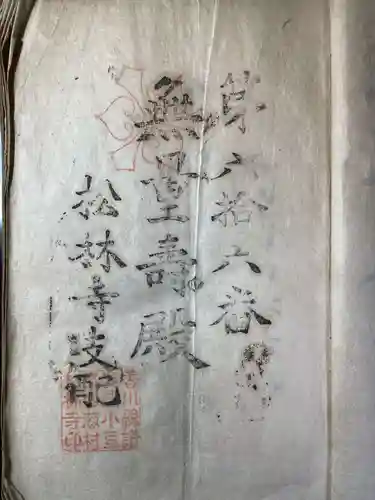 第六拾六番
無量壽殿
松林寺支配